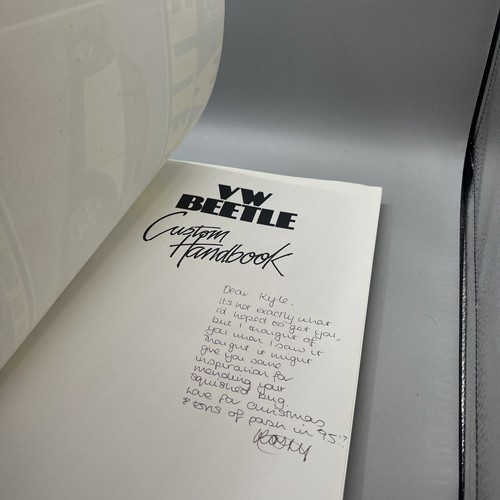 VW
BEETLE
Custom
Handbook
Dear Kyle.
it's not exactly what
I'd hoped to get you,
but I thought of
you when I saw it
Thought it might
give you some
inspiration for
mending your
squished bug.
Love for christmas
& tons of in 95!?